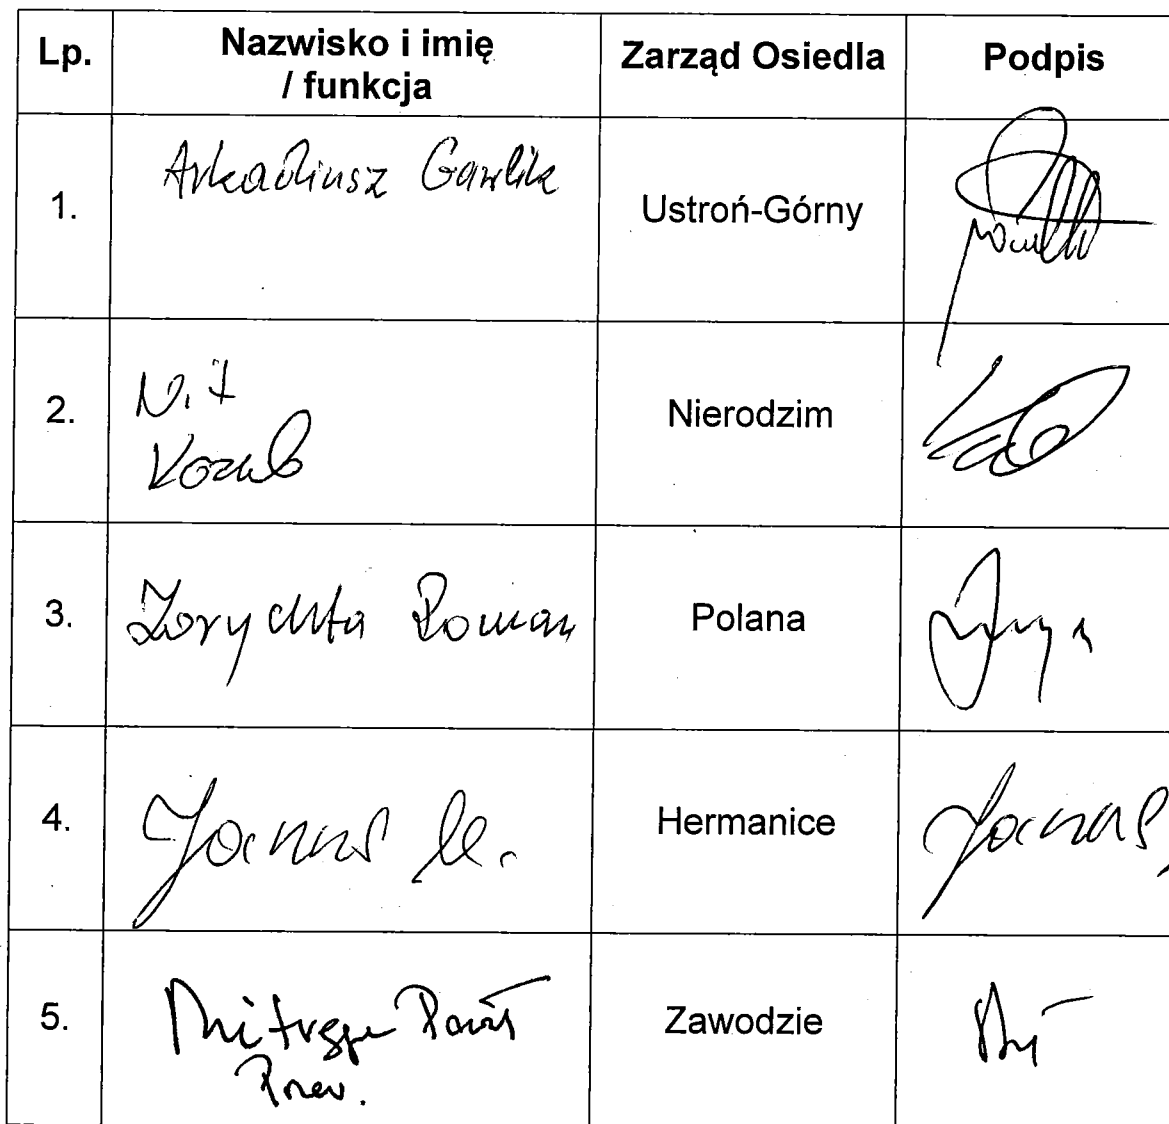 Lp. Nazwisko i imię / funkcja Zarząd Osiedla Podpis
1. Arkadiusz Gawlik Ustroń-Górny
2. Wit Kozub Nierodzim
3. Zorychta Roman Polana
4. Janus Hermanice Janus
5. Mitręga Zawodzie